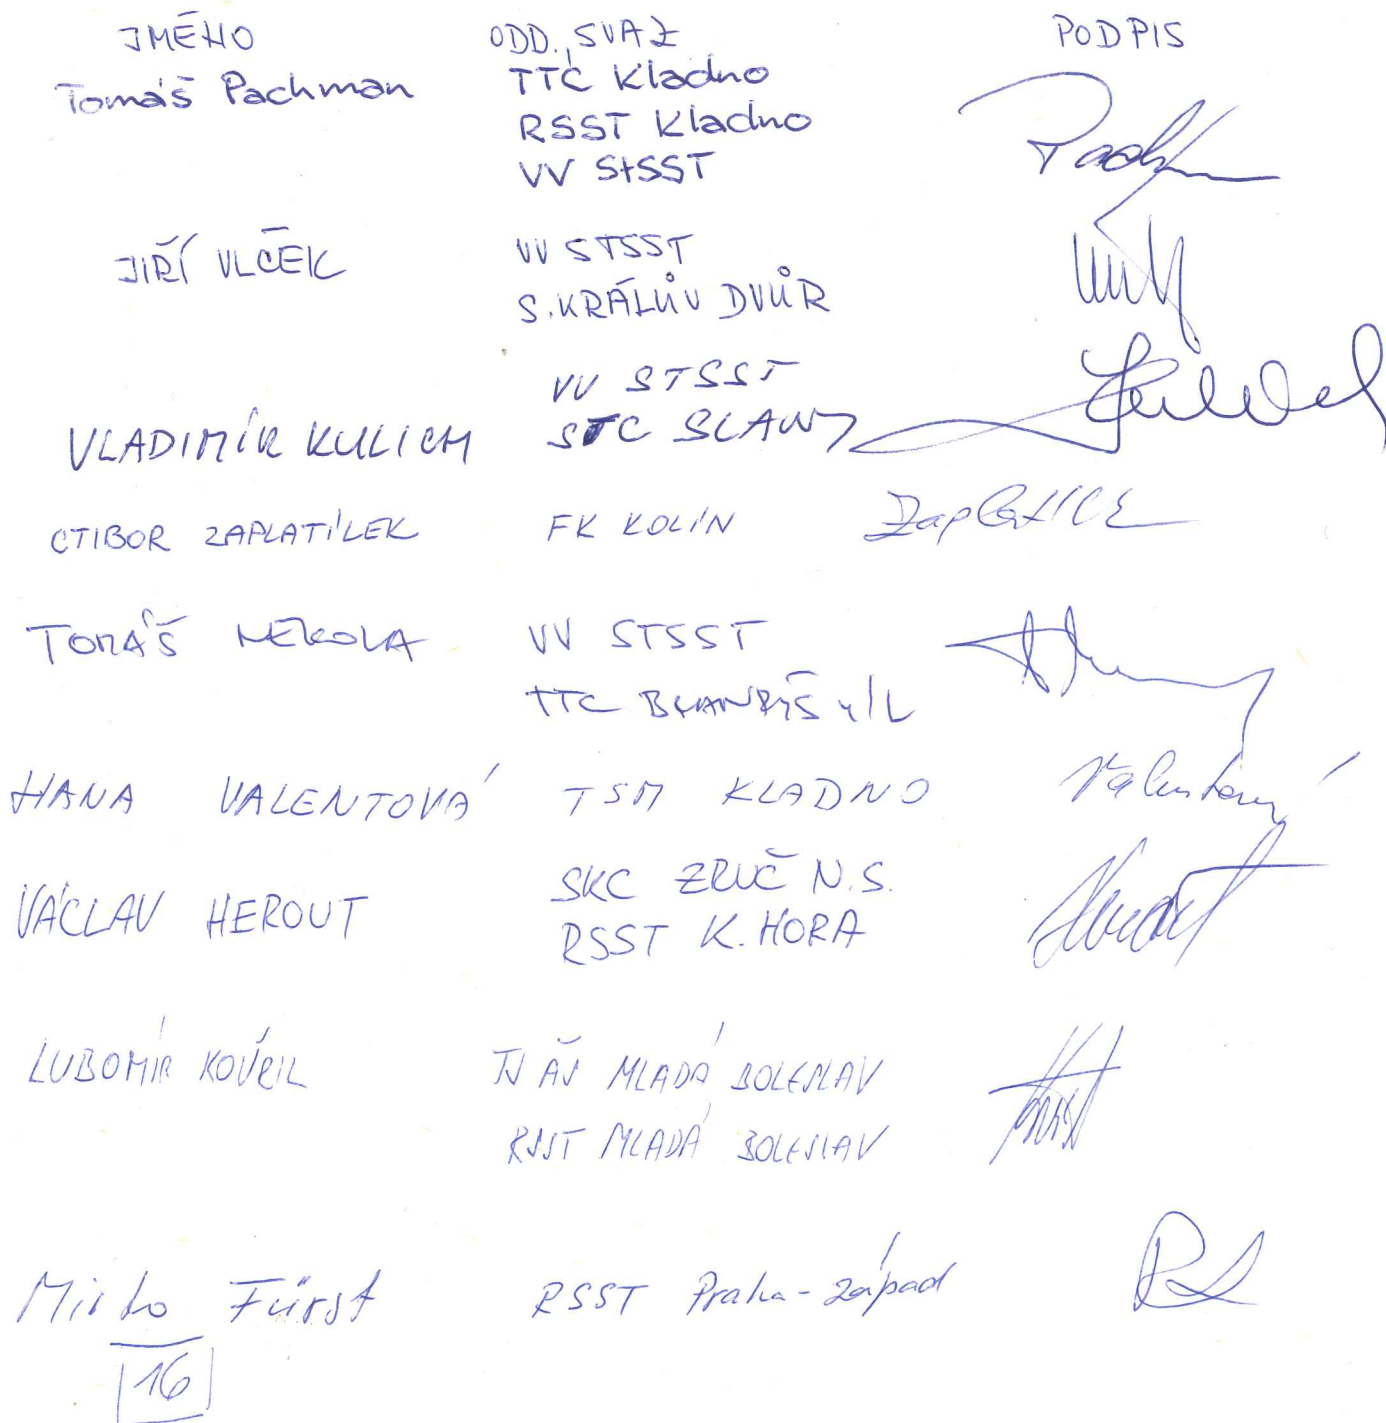 JMÉNO ODD., SVAZ PODPIS
Tomáš Pachman TTC Kladno
RSST Kladno
VV StSST
JIŘÍ VLČEK VV STSST
S. KRÁLŮV DVŮR
VV STSST
VLADIMÍR KULICH STC SLANÝ
CTIBOR ZAPLATÍLEK FK KOLÍN
TOMÁŠ NEKOLA VV STSST
TTC BRANDÝS n/L
HANA VALENTOVÁ TSM KLADNO Valentová
SKC ZRUČ N.S.
VÁCLAV HEROUT RSST K. HORA
LUBOMÍR KOVŘIL TJ ÁŠ MLADÁ BOLESLAV
RSST MLADÁ BOLESLAV
Fürst RSST Praha-západ
16